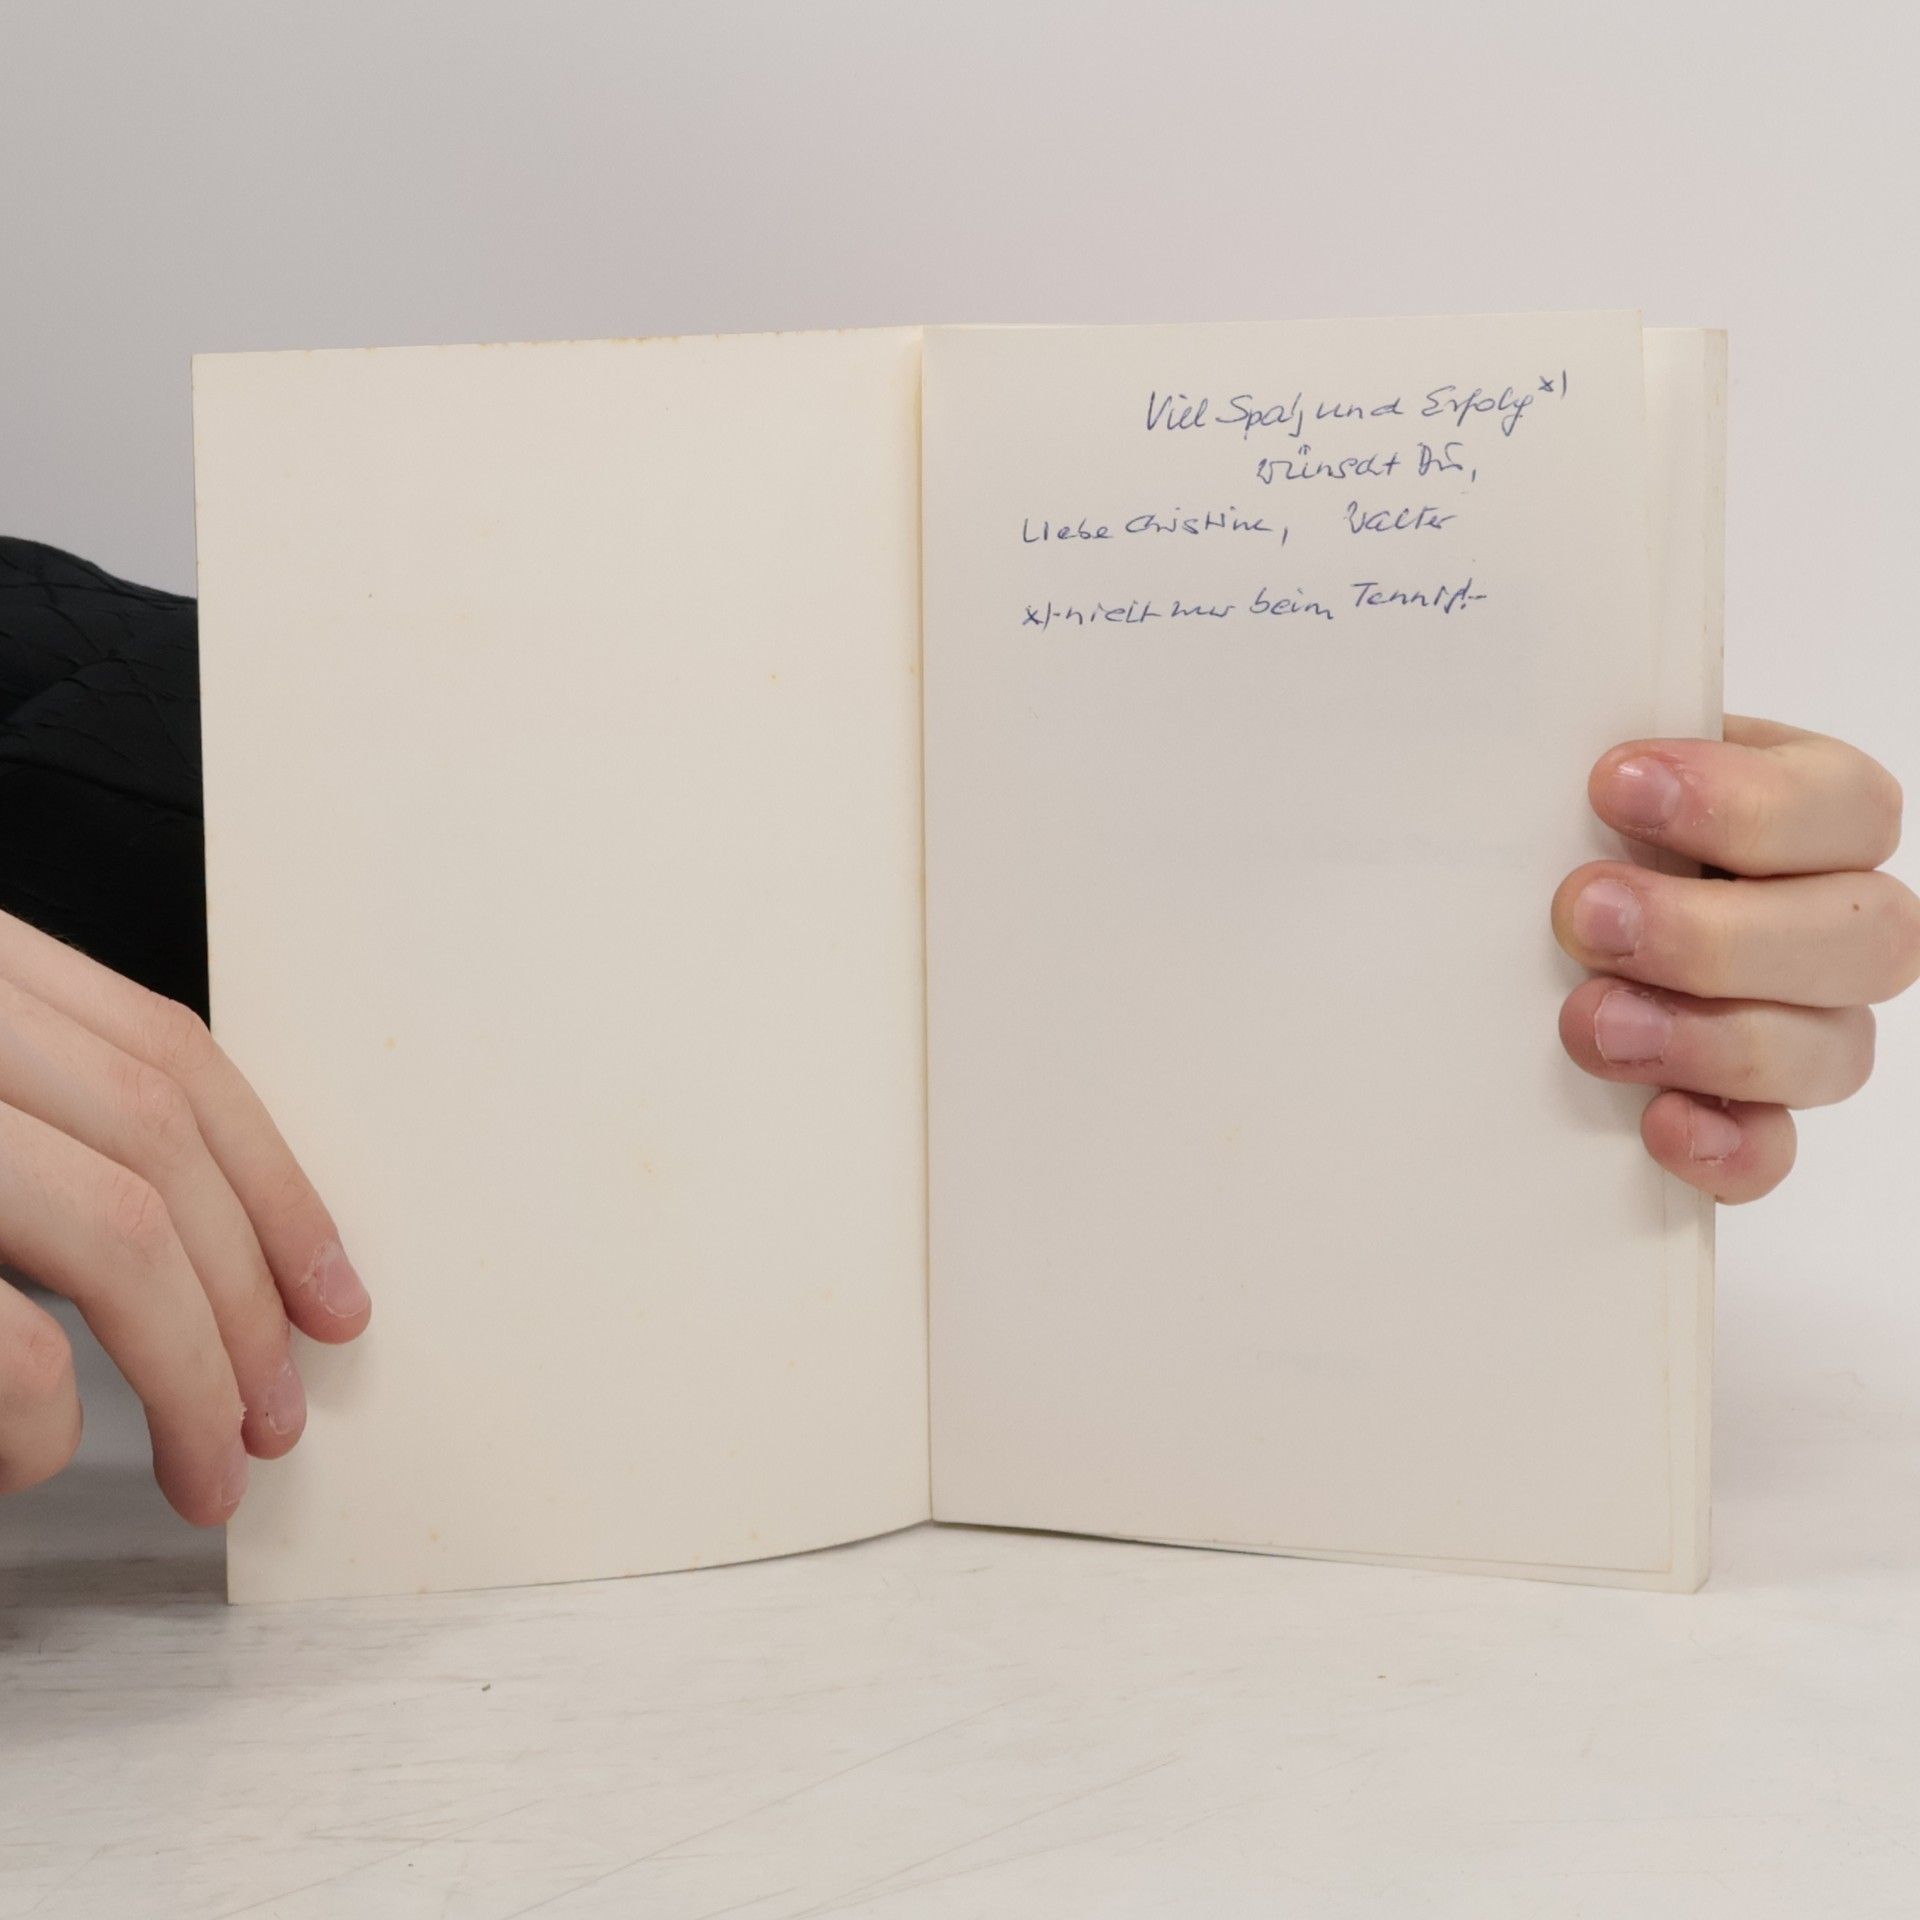 Viel Spaß und Erfolg *)
wünscht Dir,
Liebe Christine, Walter
*)-nicht nur beim Tennis!-